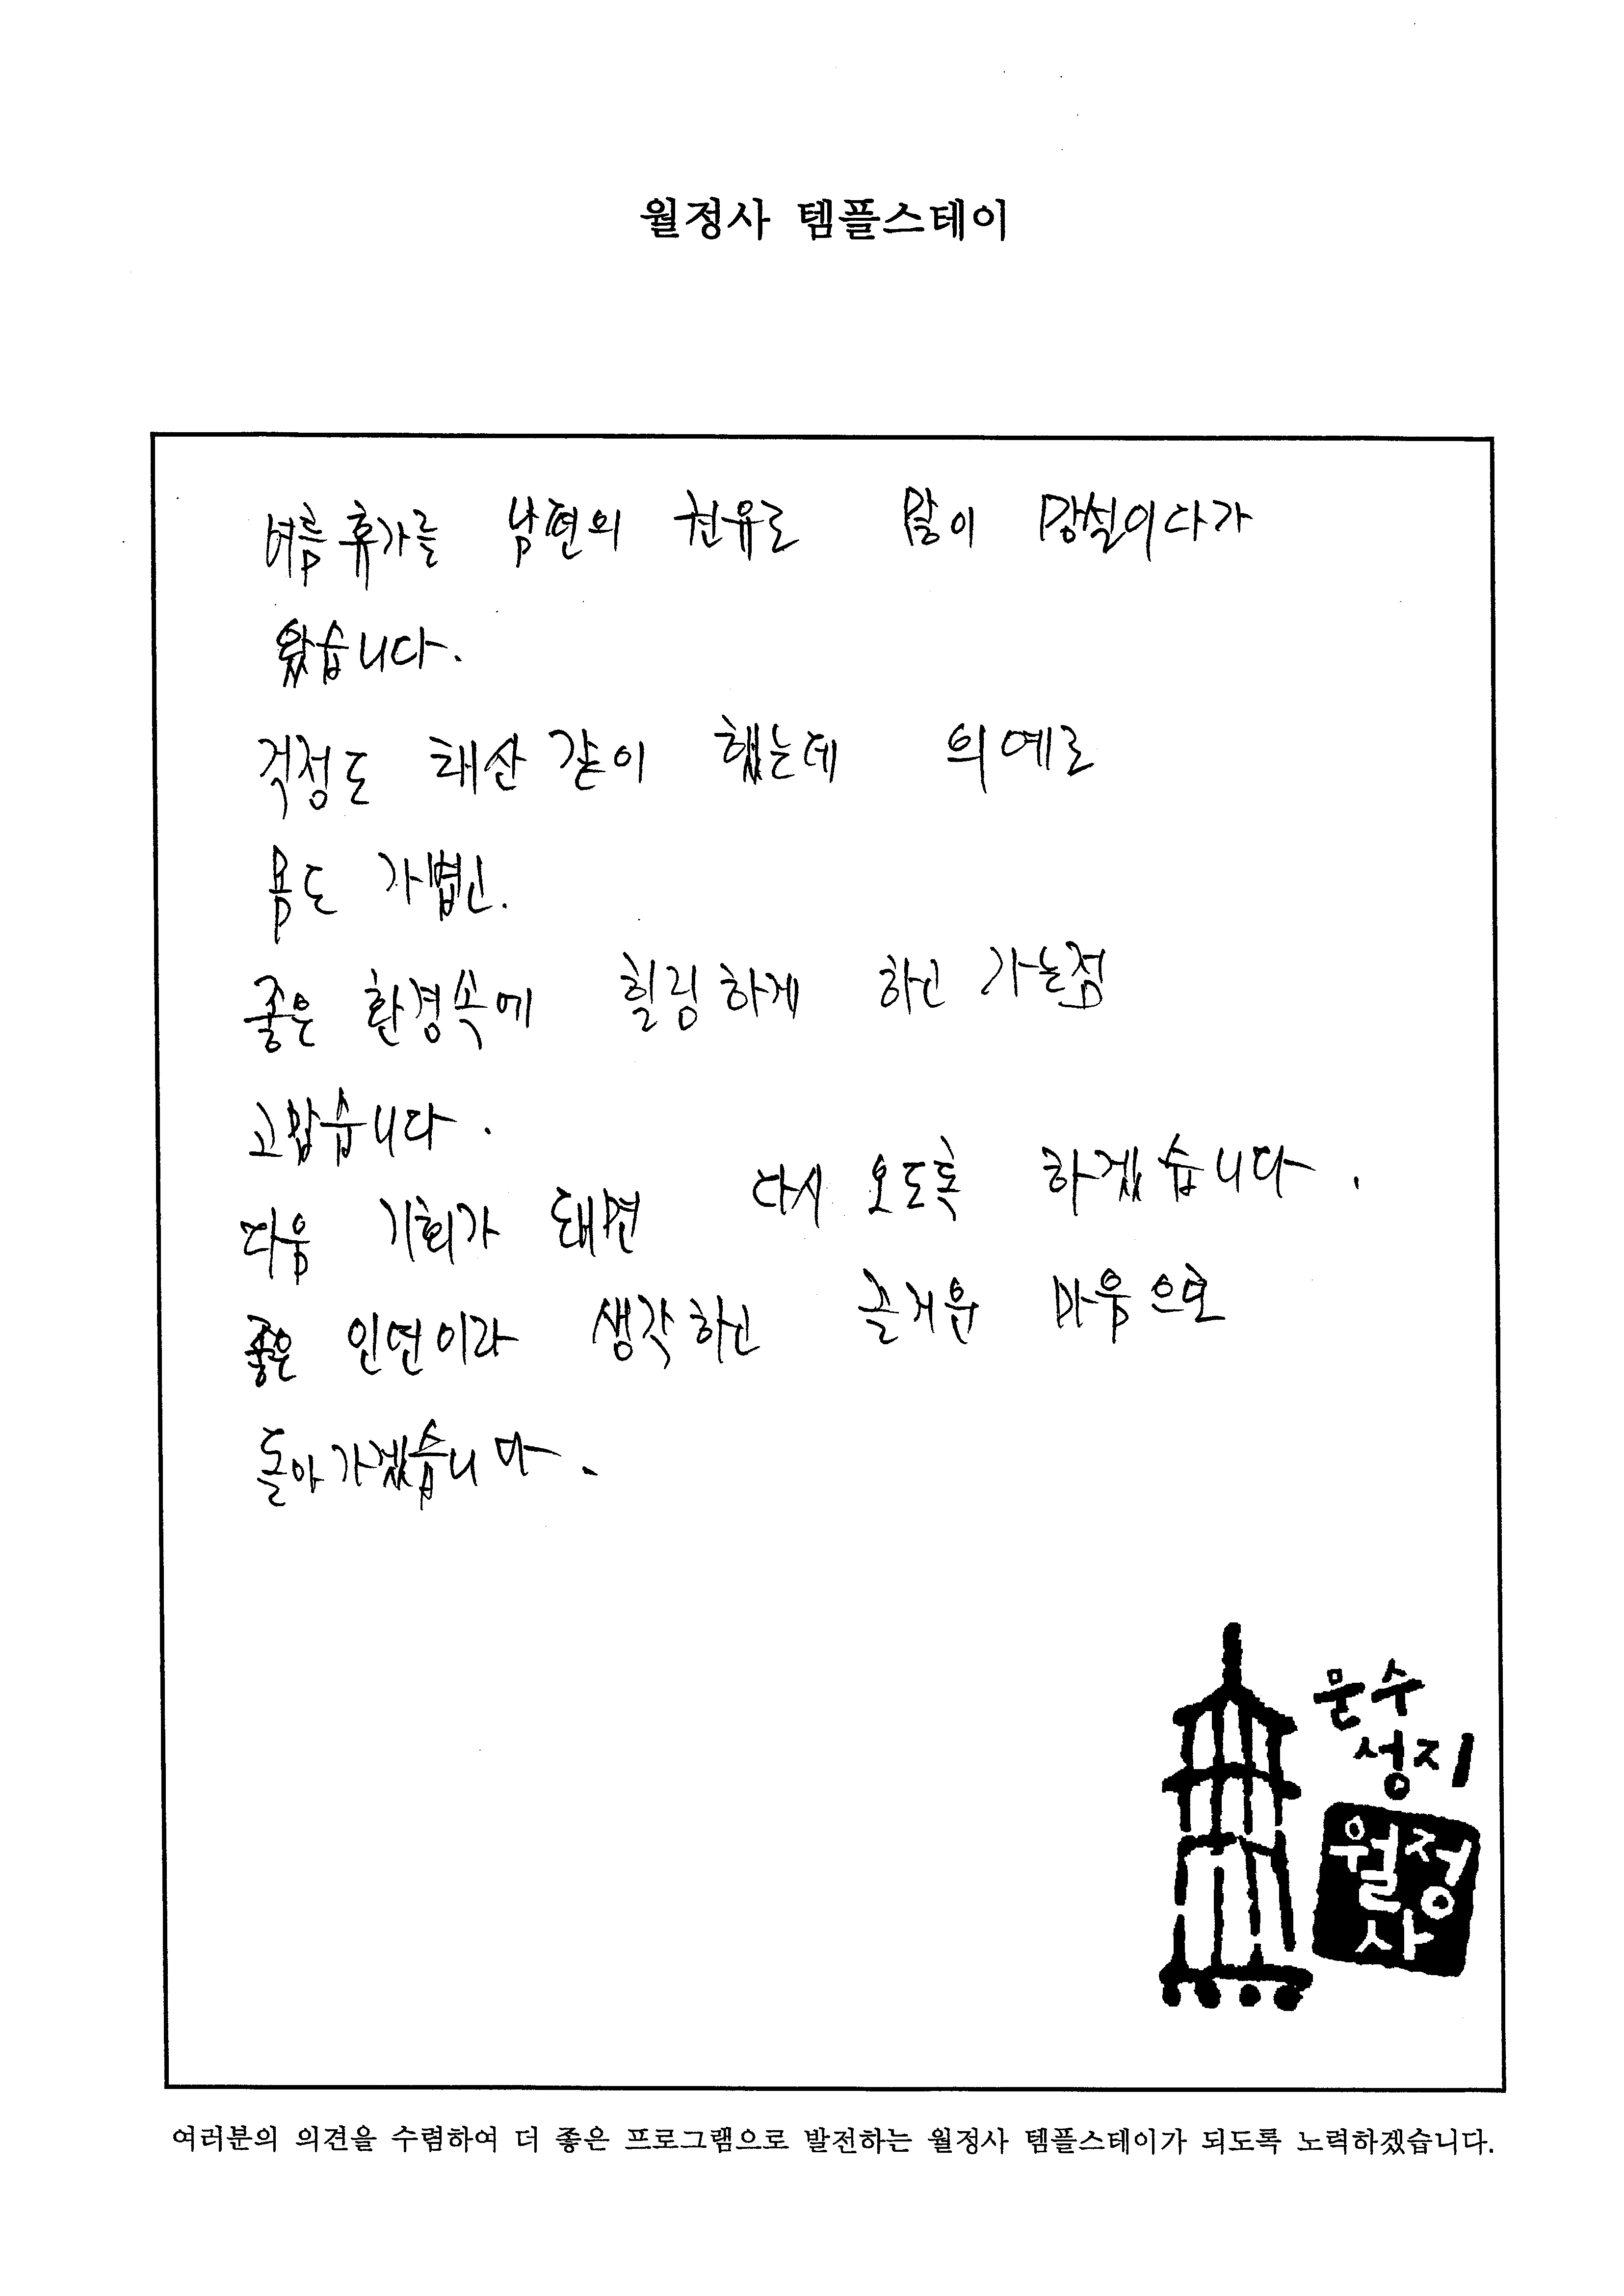 월정사 템플스테이
여름휴가를 남편의 권유로 많이 망설이다가
왔습니다.
걱정도 태산같이 했는데 의예로
몸도 가볍고.
좋은 환경속에 힐링하게 하고 가는점
고맙습니다.
다음 기회가 돼면 다시 오도록 하겠습니다.
좋은 인연이라 생각하고 즐거운 마음으로
돌아가겠습니다.
문수
성지
월정
사
여러분의 의견을 수렴하여 더 좋은 프로그램으로 발전하는 월정사 템플스테이가 되도록 노력하겠습니다.